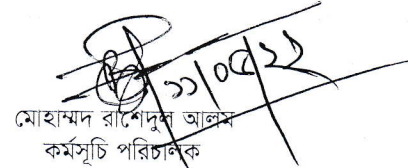 ১১/০৫/২১
মোহাম্মদ রাশেদুল আলম
কর্মসূচি পরিচালক